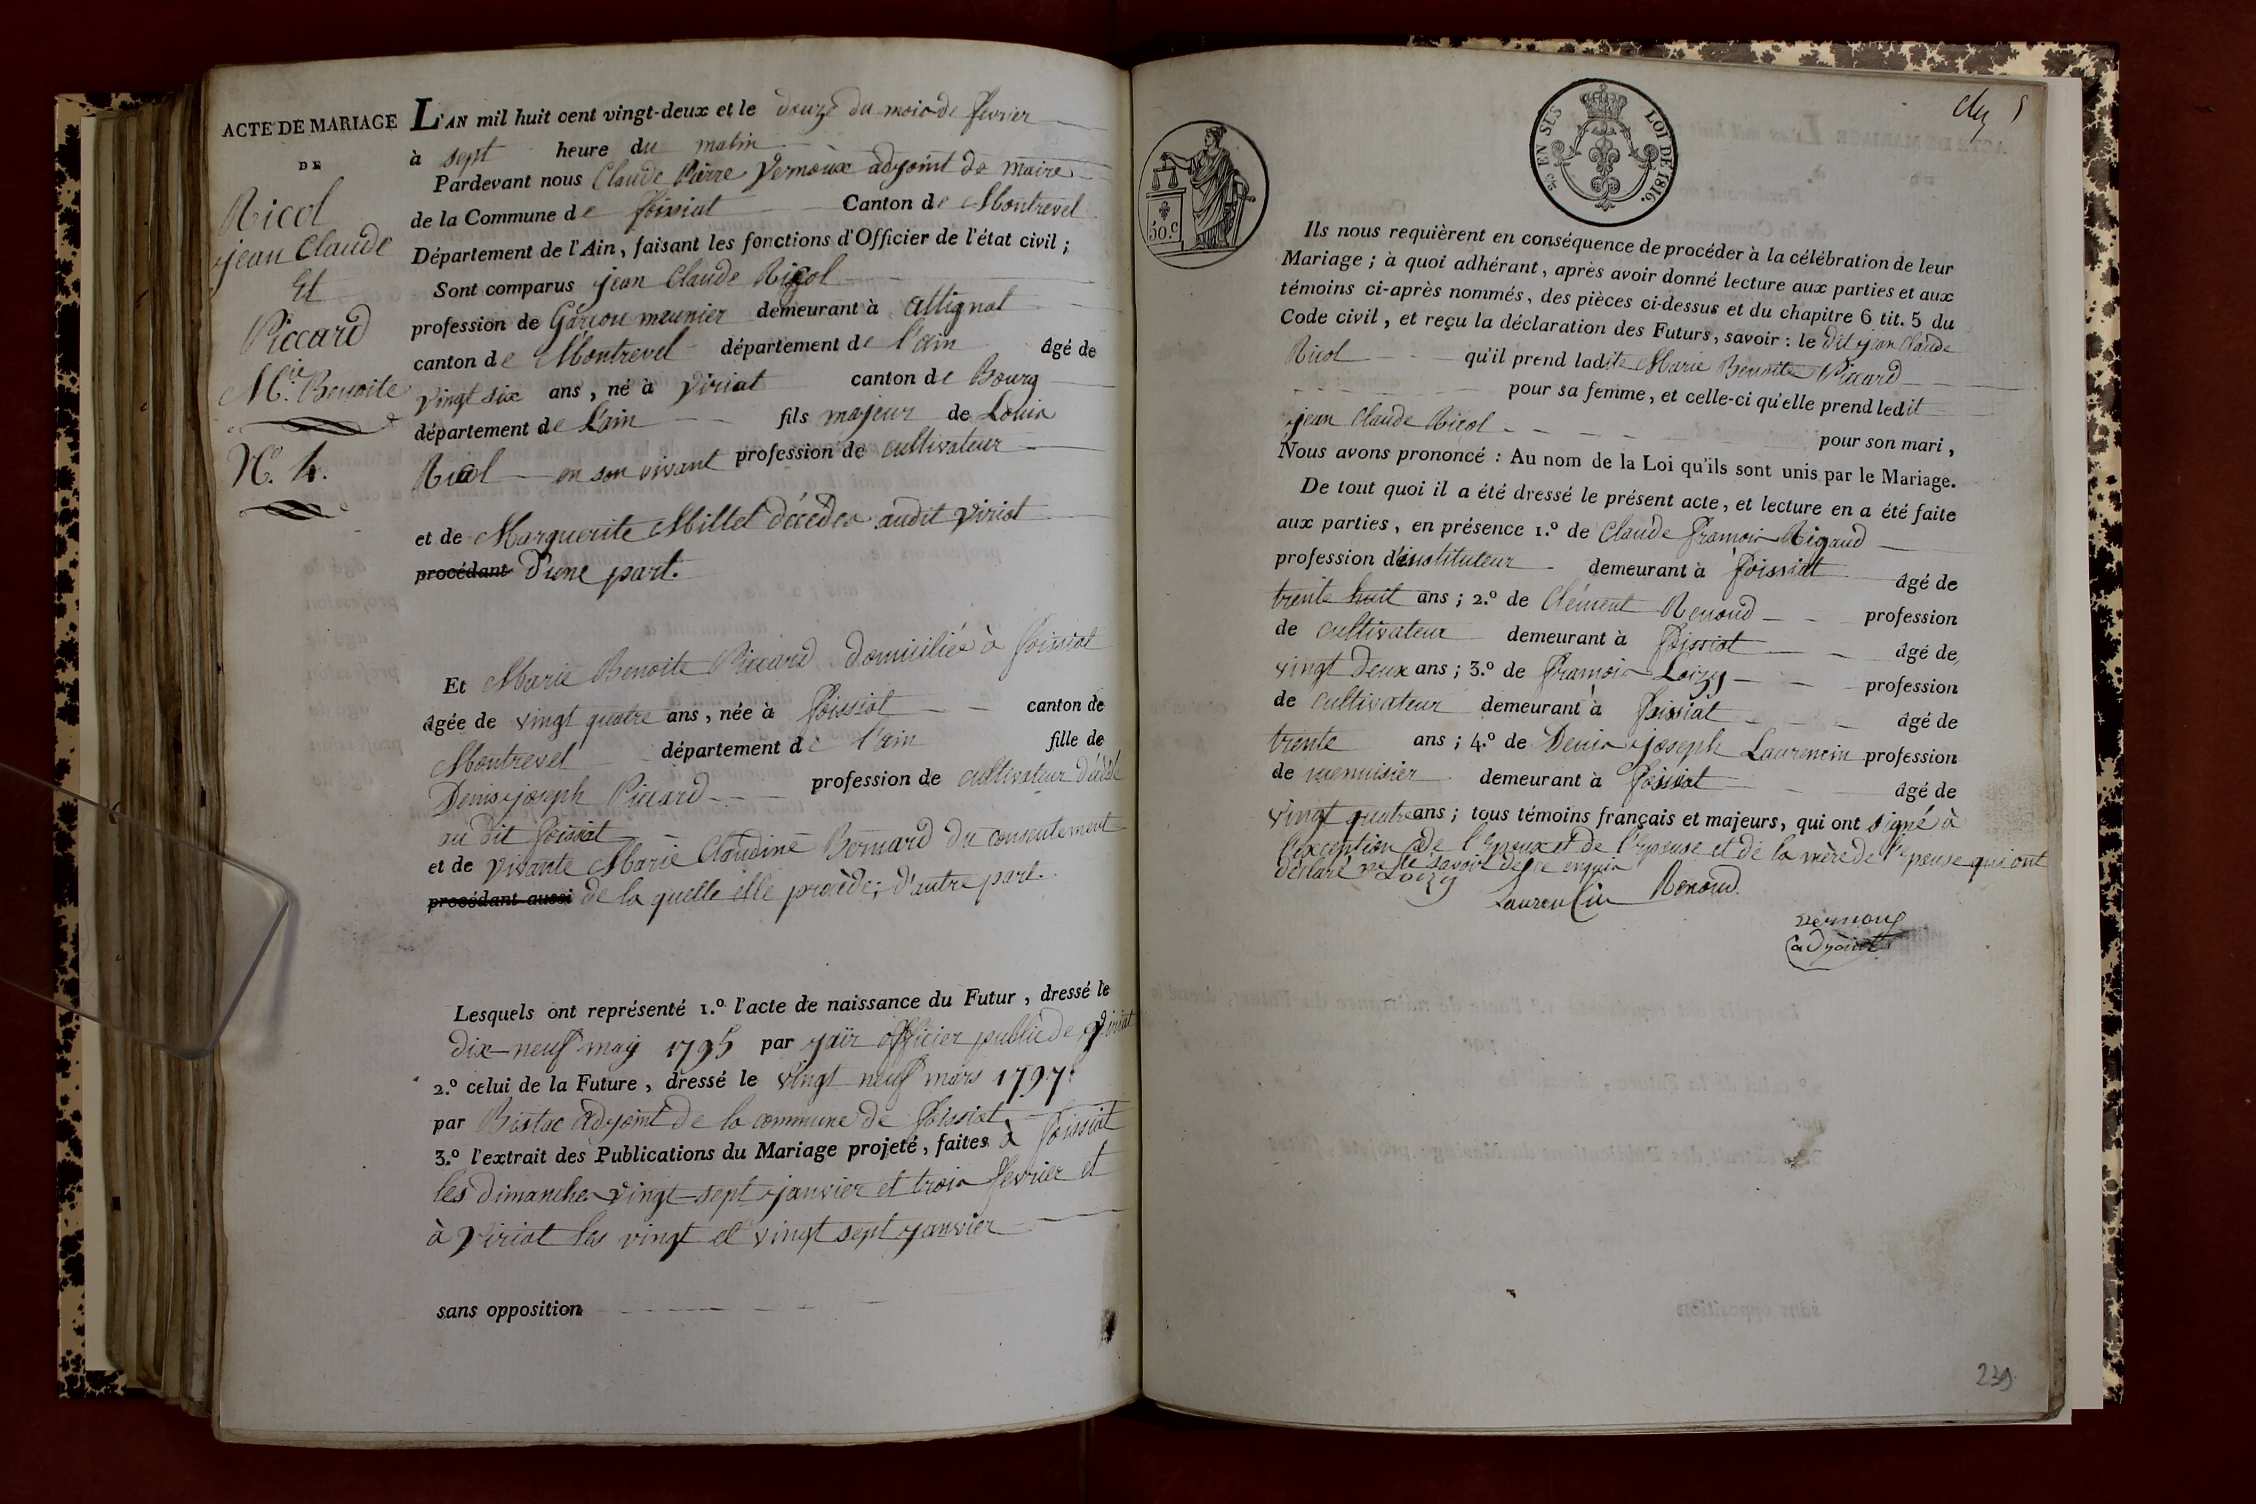 ACTE DE MARIAGE
DE
Nicol
jean Claude
Et
Piccard
M.ie Benoite
N.º 4.
L'AN mil huit cent vingt-deux et le douze du mois de fevrier
à sept heure du matin
Pardevant nous Claude Pierre Vernoux adjoint de maire
de la Commune de foissiat Canton de Montrevel
Département de l'Ain, faisant les fonctions d'Officier de l'état civil ;
Sont comparus jean Claude Nicol
profession de Garçon meunier demeurant à attignat
canton de Montrevel département de l'ain âgé de
vingt six ans, né à viriat canton de Bourg
département de l'ain fils majeur de Louis
Nicol en son vivant profession de cultivateur
et de Marguerite Millet décédés audit viriat
procédant d'une part.
Et Marie Benoite Piccard domiciliée à foissiat
âgée de vingt quatre ans, née à foissiat canton de
Montrevel département de l'ain fille de
Denis joseph Piccard profession de cultivateur décédé
au dit foissiat
et de vivante Marie Claudine Bernard du consentement
procédant aussi de la quelle elle procède; d'autre part.
Lesquels ont représenté 1.º l'acte de naissance du Futur, dressé le
dix-neuf may 1795 par officier public de viriat
2.º celui de la Future, dressé le vingt neuf mars 1797.
par adjoint de la commune de foissiat
3.º l'extrait des Publications du Mariage projeté, faites à foissiat
les dimanches vingt-sept janvier et trois fevrier et
à viriat les vingt et vingt sept janvier
sans opposition
EN SUS
LOI DE 1816.
50.c
Ils nous requièrent en conséquence de procéder à la célébration de leur
Mariage ; à quoi adhérant, après avoir donné lecture aux parties et aux
témoins ci-après nommés, des pièces ci-dessus et du chapitre 6 tit. 5 du
Code civil, et reçu la déclaration des Futurs, savoir : le dit jean Claude
Nicol qu'il prend ladite Marie Benoite Piccard
pour sa femme, et celle-ci qu'elle prend ledit
jean Claude Nicol pour son mari,
Nous avons prononcé : Au nom de la Loi qu'ils sont unis par le Mariage.
De tout quoi il a été dressé le présent acte, et lecture en a été faite
aux parties, en présence 1.º de Claude françois Rigaud
profession d'instituteur demeurant à foissiat âgé de
trente huit ans ; 2.º de Clément Renoud profession
de cultivateur demeurant à foissiat âgé de
vingt deux ans ; 3.º de françois Loizy profession
de cultivateur demeurant à foissiat âgé de
trente ans ; 4.º de Denis joseph Laurencin profession
de menuisier demeurant à foissiat âgé de
vingt quatre ans ; tous témoins français et majeurs, qui ont signé à
l'exception de l'Epoux et de l'Epouse et de la mère de l'Epouse qui ont
déclaré ne le savoir de ce enquis
Loizy
Laurencin Renoud
vernoux
adjoint
239